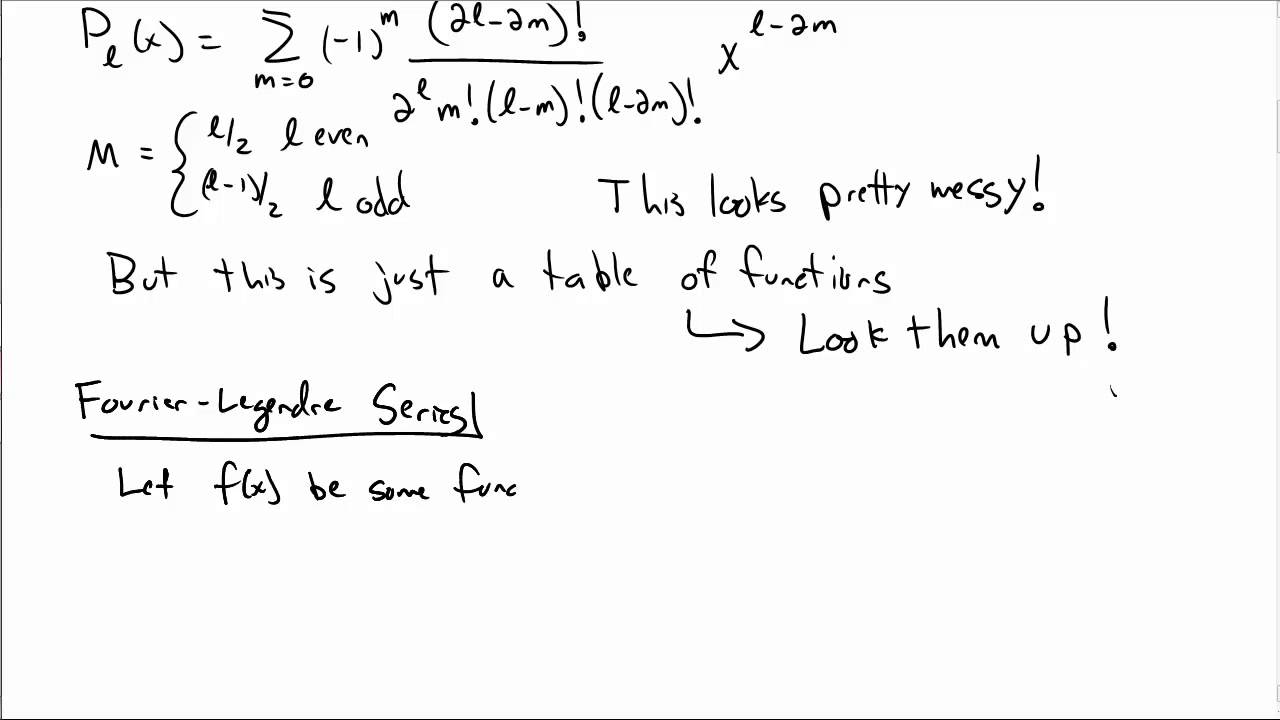 P_l(x) = Σ_{m=0} (-1)^m (2l-2m)! / (2^l m! (l-m)! (l-2m)!) x^{l-2m}
M = { l/2 l even
(l-1)/2 l odd
This looks pretty messy!
But this is just a table of functions
↳ Look them up!
Fourier-Legendre Series
Let f(x) be some func